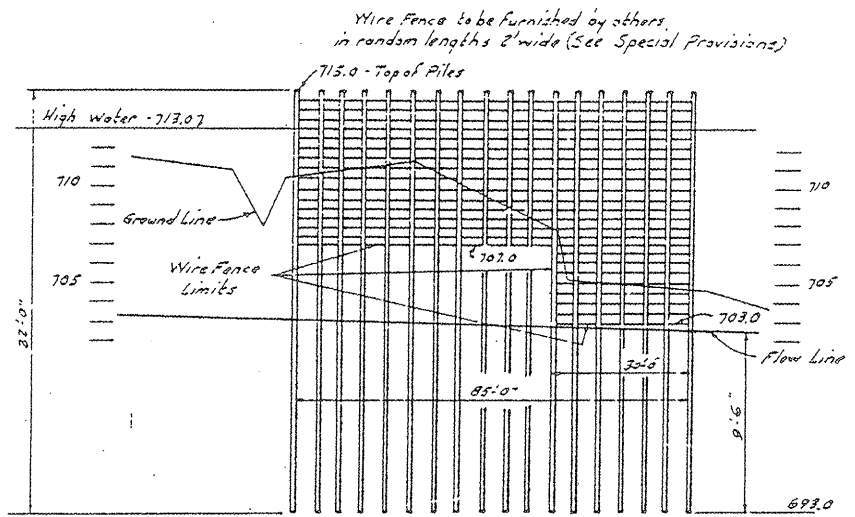 Wire Fence to be furnished by others
in random lengths 2' wide (See Special Provisions)
715.0 - Top of Piles
High Water - 713.07
710
710
Ground Line
707.0
705
Wire Fence
Limits
705
703.0
Flow Line
30'-0"
85'-0"
22'-0"
9'-6"
693.0